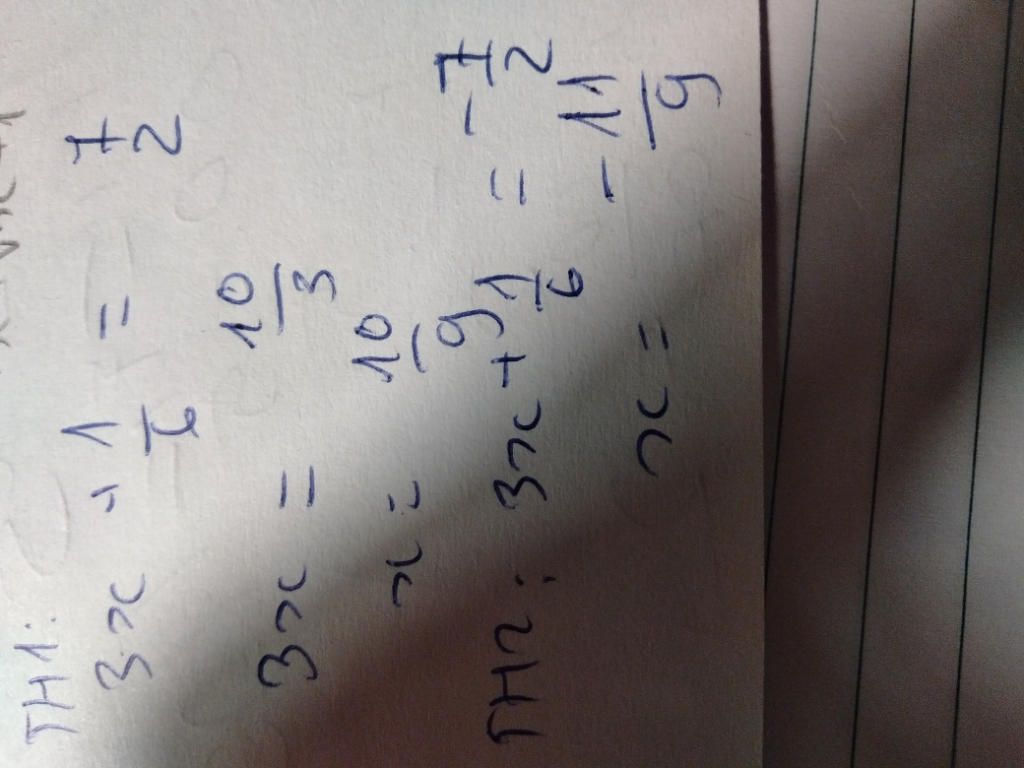 TH1:
3x + 1/6 = 7/2
3x = 10/3
x = 10/9
TH2: 3x + 1/6 = -7/2
x = -11/9